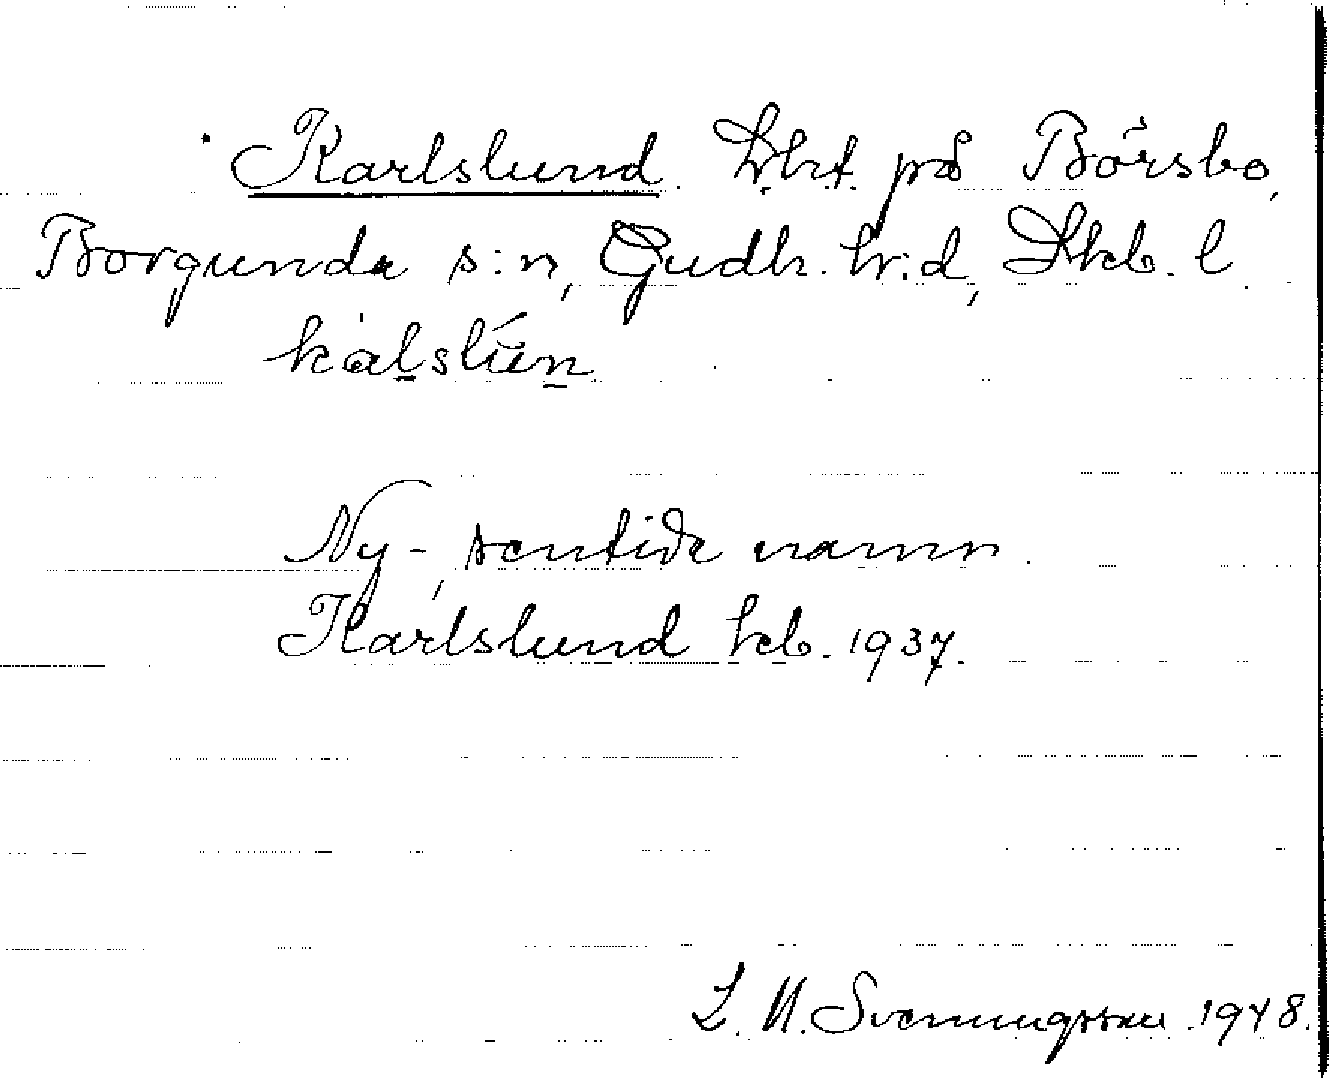 Karlslund. Lht. på Börsbo,
Borgunda s:n, Gudh. hr:d, Skb. l.
kalslun
Ny-, sentida namn.
Karlslund kb. 1937.
L. M. Svenungsson. 1948.